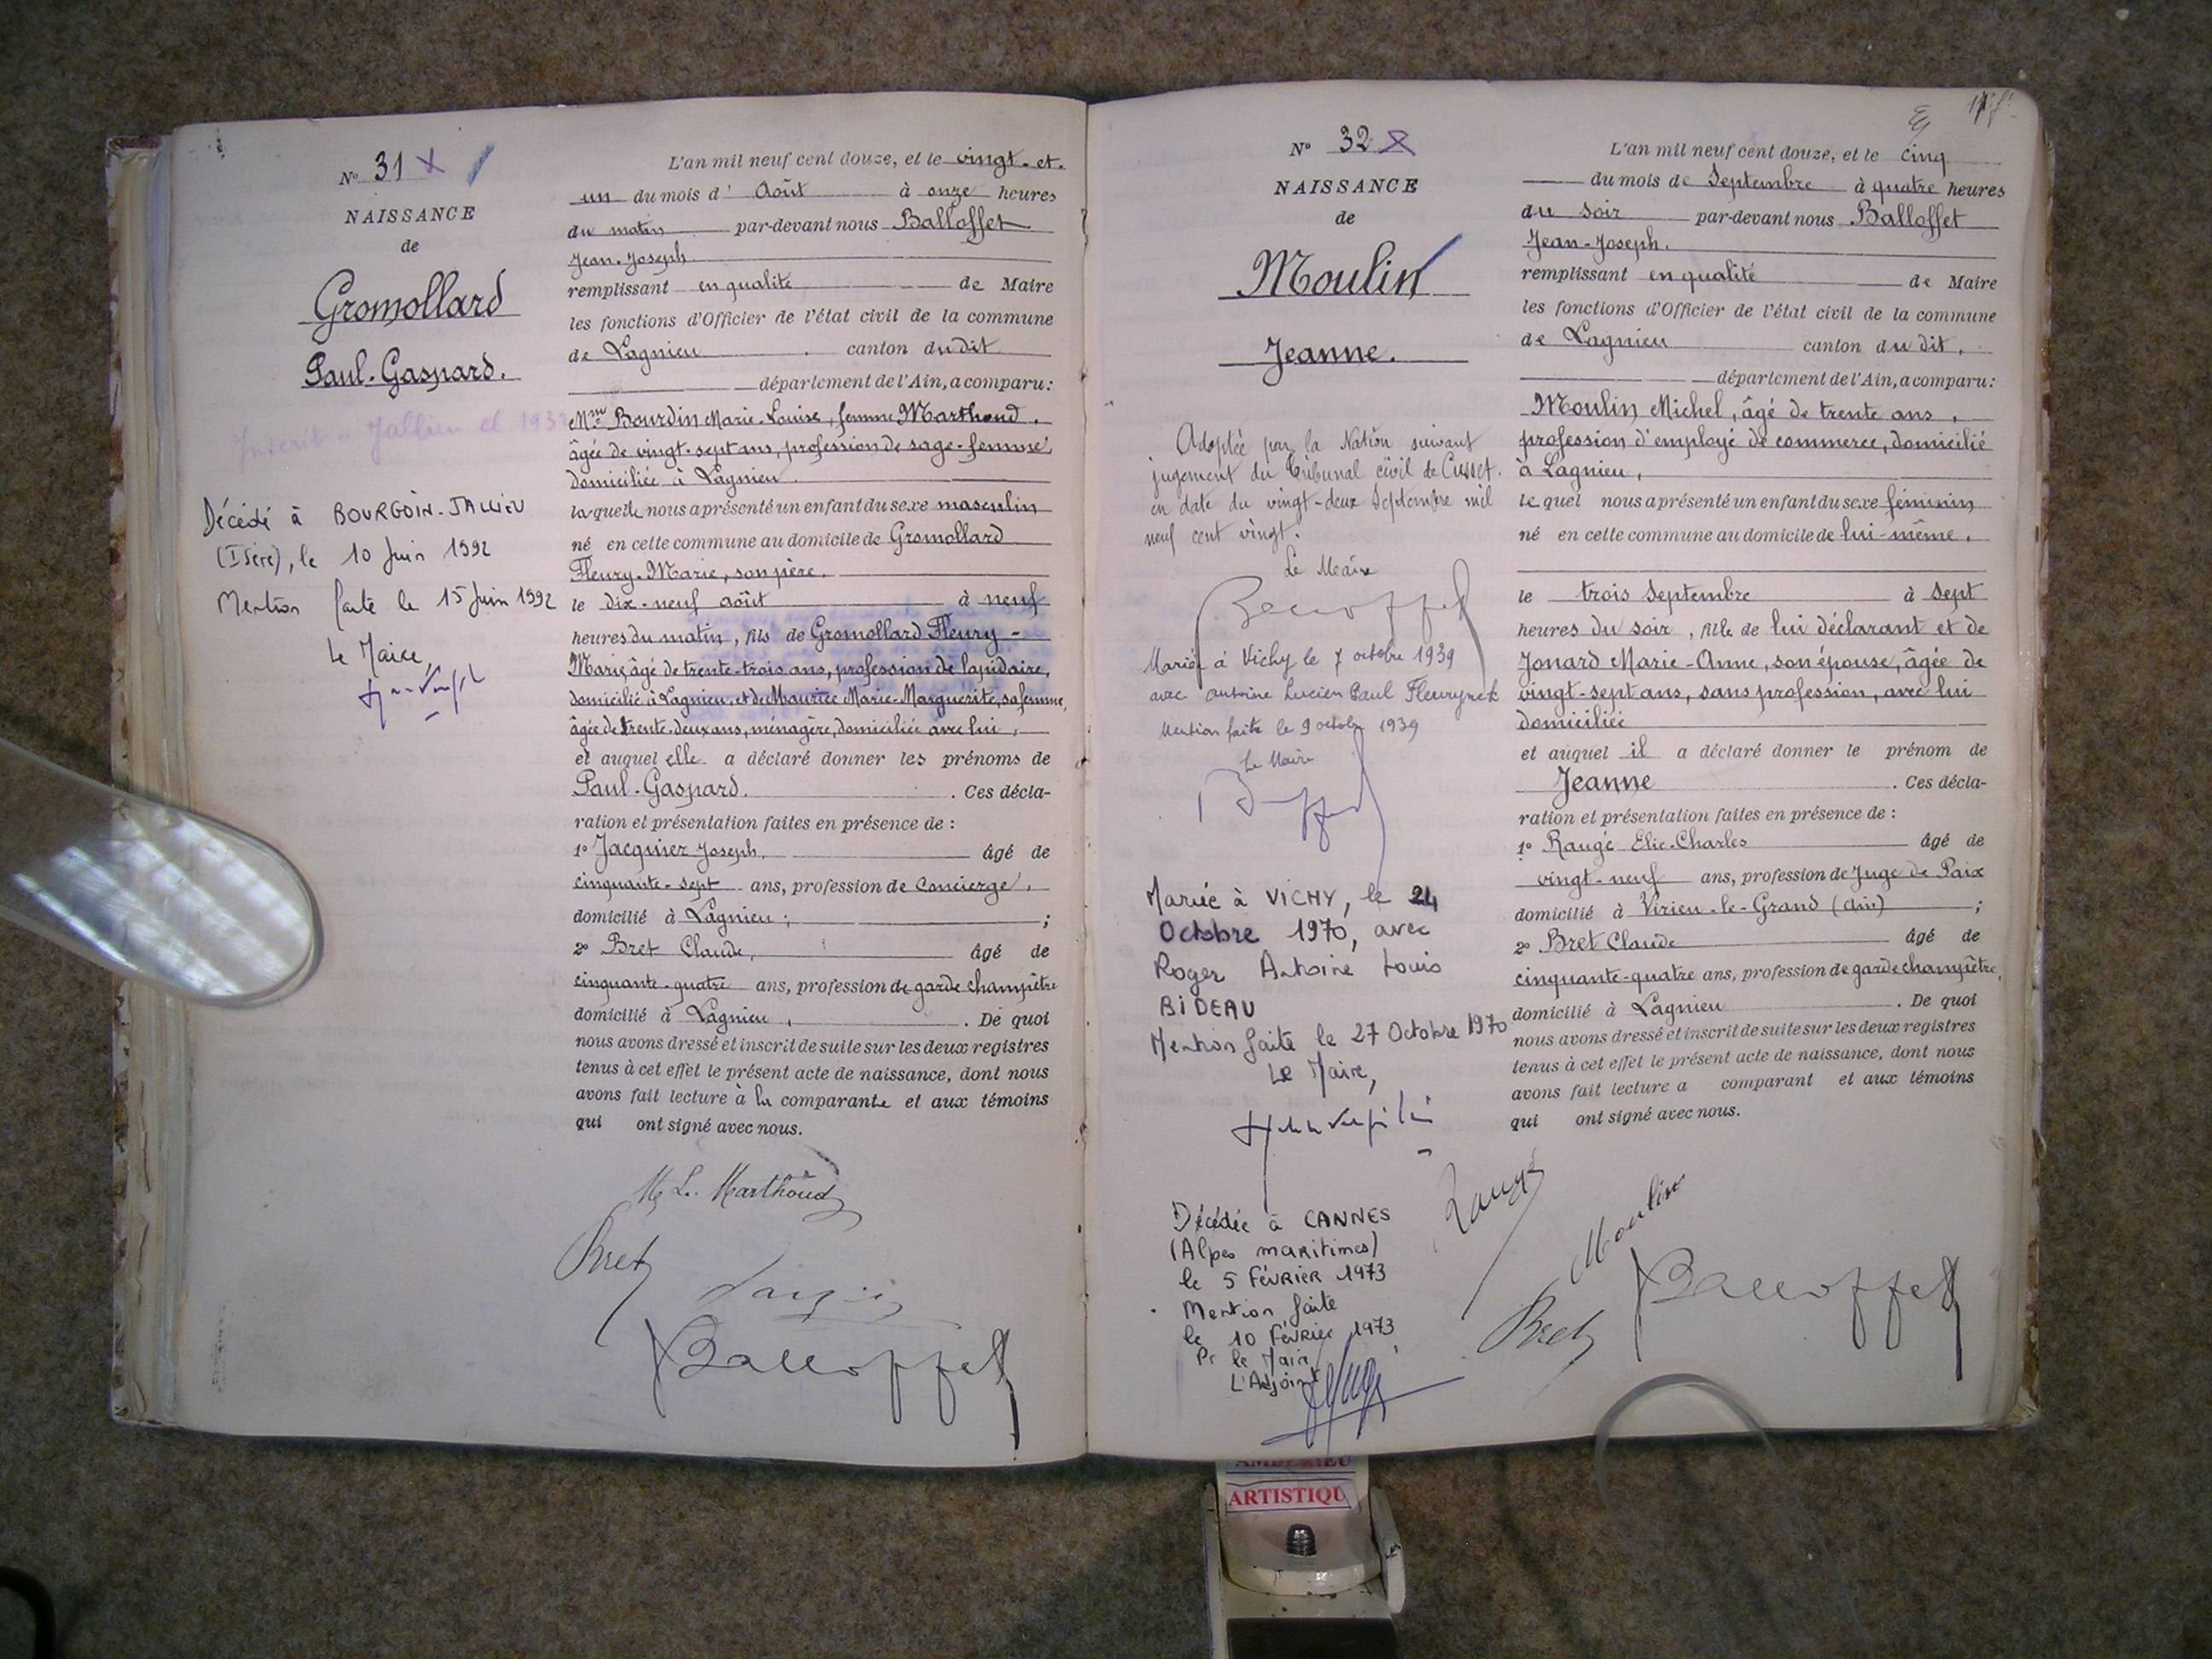 Nº 31
NAISSANCE
de
Gromollard
Paul-Gaspard.
Décédé à BOURGOIN-JALLIEU
(Isère), le 10 Juin 1992
Mention faite le 15 Juin 1992
Le Maire,
L'an mil neuf cent douze, et le vingt-et-
un du mois d' Août à onze heures
du matin par-devant nous Balloffet
Jean-Joseph
remplissant en qualité de Maire
les fonctions d'Officier de l'état civil de la commune
de Lagnieu canton dudit
département de l'Ain, a comparu:
Mme Bourdin Marie-Louise, femme Marthoud,
âgée de vingt-sept ans, profession de sage-femme,
domiciliée à Lagnieu.
laquelle nous a présenté un enfant du sexe masculin
né en cette commune au domicile de Gromollard
Fleury-Marie, son père.
le dix-neuf août à neuf
heures du matin, fils de Gromollard Fleury-
Marie, âgé de trente-trois ans, profession de lapidaire,
domicilié à Lagnieu, et de Maurice Marie-Marguerite, sa femme,
âgée de trente-deux ans, ménagère, domiciliée avec lui,
et auquel elle a déclaré donner les prénoms de
Paul-Gaspard. Ces décla-
ration et présentation faites en présence de :
1º Jacquier Joseph, âgé de
cinquante-sept ans, profession de Concierge,
domicilié à Lagnieu ;
2º Bret Claude, âgé de
cinquante-quatre ans, profession de garde champêtre
domicilié à Lagnieu, . De quoi
nous avons dressé et inscrit de suite sur les deux registres
tenus à cet effet le présent acte de naissance, dont nous
avons fait lecture à la comparante et aux témoins
qui ont signé avec nous.
M. L. Marthoud
Bret
Balloffet
Nº 32
NAISSANCE
de
Moulin
Jeanne.
Adoptée par la Nation suivant
jugement du Tribunal civil de Cusset
en date du vingt-deux Septembre mil
neuf cent vingt.
Le Maire
Balloffet
Mariée à Vichy le 7 octobre 1939
avec Antoine Lucien Paul Fleurynck
Mention faite le 9 octobre 1939
Le Maire
Mariée à VICHY, le 24
Octobre 1970, avec
Roger Antoine Louis
BIDEAU
Mention faite le 27 Octobre 1970
Le Maire,
Décédée à CANNES
(Alpes maritimes)
le 5 FÉVRIER 1973
Mention faite
le 10 FÉVRIER 1973
Pr le Maire
L'Adjoint
L'an mil neuf cent douze, et le cinq
du mois de Septembre à quatre heures
du soir par-devant nous Balloffet
Jean-Joseph.
remplissant en qualité de Maire
les fonctions d'Officier de l'état civil de la commune
de Lagnieu canton dudit,
département de l'Ain, a comparu:
Moulin Michel, âgé de trente ans,
profession d'employé de commerce, domicilié
à Lagnieu,
lequel nous a présenté un enfant du sexe féminin
né en cette commune au domicile de lui-même,
le trois Septembre à Sept
heures du soir, fille de lui déclarant et de
Jonard Marie-Anne, son épouse, âgée de
vingt-sept ans, sans profession, avec lui
domiciliée
et auquel il a déclaré donner le prénom de
Jeanne . Ces décla-
ration et présentation faites en présence de :
1º Raugé Elie-Charles âgé de
vingt-neuf ans, profession de Juge de Paix
domicilié à Virieu-le-Grand (Ain) ;
2º Bret Claude âgé de
cinquante-quatre ans, profession de garde champêtre,
domicilié à Lagnieu . De quoi
nous avons dressé et inscrit de suite sur les deux registres
tenus à cet effet le présent acte de naissance, dont nous
avons fait lecture a comparant et aux témoins
qui ont signé avec nous.
Raugé
Moulin
Bret
Balloffet
AMBERIEU
ARTISTIQU